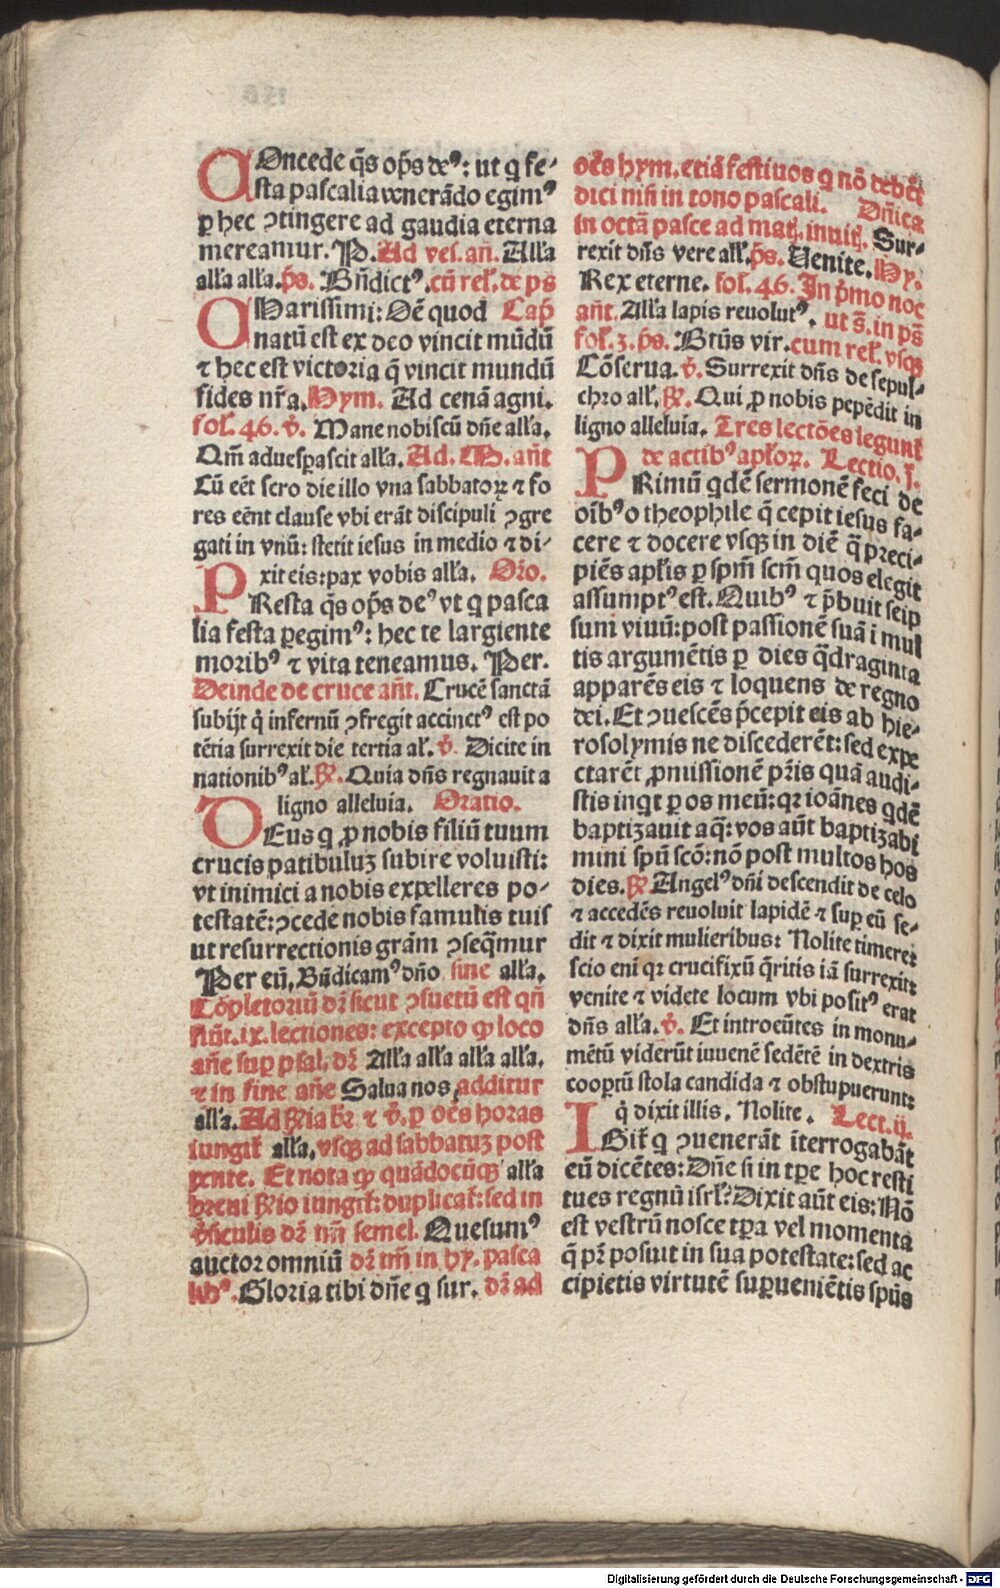 COncede q̃s op̃s deꝰ: ut q fe-
sta pascalia venerãdo egimꝰ
ꝑ hec ↄtingere ad gaudia eterna
mereamur. P. Ad ves. añ. Alła
alła alła. p̃s. Bñdictꝰ. cũ rel̃. de ps
CHarissimi: Oẽ quod Cap̃
natũ est ex deo vincit mũdũ
⁊ hec est victoria q̃ vincit mundũ
fides nr̃a. Hym. Ad cenã agni.
fol̃. 46. v̄. Mane nobiscũ dñe alła.
Qm̃ aduesꝑascit alła. Ad. M. añt
Cũ eẽt sero die illo vna sabbatoꝝ ⁊ fo
res eẽnt clause vbi erãt discipuli ↄgre
gati in vnũ: stetit iesus in medio ⁊ di-
xit eis: pax vobis alła. Or̃o.
PResta q̃s op̃s deꝰ vt q pasca
lia festa ꝑegimꝰ: hec te largiente
moribꝰ ⁊ vita teneamus. Per.
Deinde de cruce añt. Crucẽ sanctã
subijt q̃ infernũ ↄfregit accinctꝰ est po
tẽtia surrexit die tertia al̃. v̄. Dicite in
nationibꝰ al̃. ℟. Quia dñs regnauit a
ligno alleluia. Oratio.
DEus q ꝓ nobis filiũ tuum
crucis patibuluꝫ subire voluisti:
vt inimici a nobis expelleres po-
testatẽ: ↄcede nobis famulis tuis
ut resurrectionis gram̃ ↄseq̃mur
Per eũ. Bñdicamꝰ dño sine alła.
Cõpletoriũ dr̃ sicut ↄsuetũ est qñ
fiũt. ix. lectiones: excepto ꝙ loco
añe suꝑ psal. dr̃ Alła alła alła alła.
⁊ in fine añe Salua nos additur
alła. Ad ℟ia br̃ ⁊ v̄. ꝑ oẽs horas
iungit̃ alła. vsqꝫ ad sabbatuꝫ post
pente. Et nota ꝙ quãdocũqꝫ alła
breui ℟io iungit̃: duplicat̃: sed in
v̄siculis dr̃ tm̃ semel. Quesumꝰ
auctor omniũ dr̃ tm̃ in hy. pasca
libꝰ. Gloria tibi dñe q sur. dr̃ ad
oẽs hym. etiã festiuos q nõ debẽt
dici nisi in tono pascali. Dñica
in octã pasce ad mat̃. inuit̃. Sur-
rexit dñs vere all̃. p̃s. Uenite. Hy.
Rex eterne. fol. 46. In p̃mo noc
añt. Alła lapis reuolutꝰ. ut s̃. in ps̃
fol̃. 3. p̃s. Btũs vir. cum rel̃. vsqꝫ
Cõserua. v̄. Surrexit dñs de sepul-
chro all̃. ℟. Qui ꝓ nobis pepẽdit in
ligno alleluia. Tres lectões legunt̃
de actibꝰ apl̃oꝝ. Lectio. j.
PRimũ qdẽ sermonẽ feci de
oĩbꝰ o theophile q̃ cepit iesus fa-
cere ⁊ docere vsqꝫ in diẽ q̃ preci-
piẽs apl̃is ꝑ spm̃ scm̃ quos elegit
assumptꝰ est. Quibꝰ ⁊ p̃buit seip
sum viuũ: post passionẽ suã i mul
tis argumẽtis ꝑ dies q̃draginta
apparẽs eis ⁊ loquens de regno
dei. Et ↄuescẽs p̃cepit eis ab hie-
rosolymis ne discederẽt: sed expe
ctarẽt ꝓmissionẽ pr̃is quã audi-
stis inqt ꝑ os meũ: qꝛ ioãnes qdẽ
baptizauit aq̃: vos aũt baptizabi
mini spũ scõ: nõ post multos hos
dies. ℟ Angelꝰ dñi descendit de celo
⁊ accedẽs reuoluit lapidẽ ⁊ suꝑ eũ se-
dit ⁊ dixit mulieribus: Nolite timere:
scio eni qꝛ crucifixũ q̃ritis iã surrexit:
venite ⁊ videte locum vbi positꝰ erat
dñs alła. v̄. Et introeũtes in monu-
mẽtũ viderũt iuuenẽ sedẽtẽ in dextris
cooptũ stola candida ⁊ obstupuerunt:
q̃ dixit illis. Nolite. Lect. ij.
IGit̃ q ↄuenerãt ĩterrogabãt
eũ dicẽtes: Dñe si in tꝑe hoc resti
tues regnũ isrl̃? Dixit aũt eis: Nõ
est vestrũ nosce tꝑa vel momenta
q̃ pr̃ posuit in sua potestate: sed ac
cipietis virtutẽ suꝑueniẽtis spũs
Digitalisierung gefördert durch die Deutsche Forschungsgemeinschaft - DFG